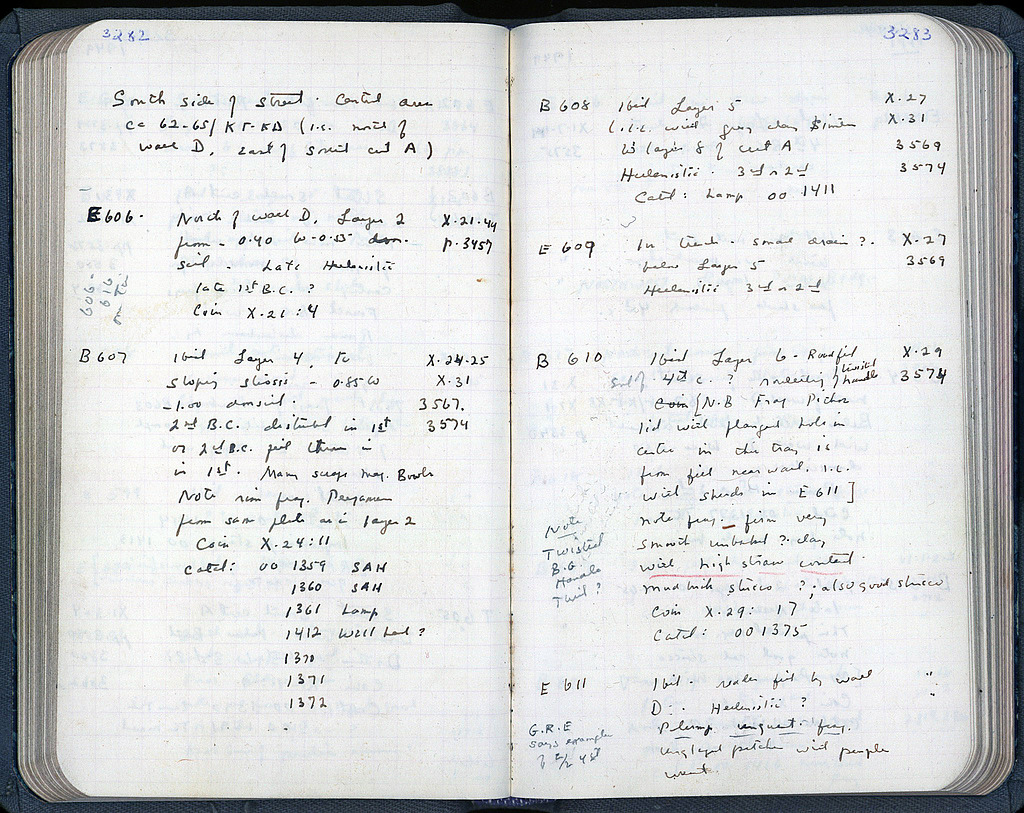 3282
South side of street. Central area
ca 62-65/ KΓ-KD (i.e. north of
wall D, east of south cut A)
E 606. North of wall D, Layer 2 X.21.44
from - 0.40 to -0.55 p. 3457
soil. Late Hellenistic
late 1st B.C. ?
Coin X.21:4
B 607 Ibid Layer 4, to X.24.25
sloping stosis - 0.85 to X.31
-1.00 3567.
2nd B.C. disturbed in 1st 3574
or 2nd B.C. fill thrown in
in 1st. Many scraps Meg. Bowls
Note rim frag. Pergamene
from same plate as in layer 2
Coin X.24:11
Catd: 00 1359 SAH
1360 SAH
1361 Lamp
1412 Well head ?
1370
1371
1372
3283
B 608 Ibid Layer 5 X.27
with grey clay similar X.31
to layer 8 of cut A 3569
Hellenistic. 3rd or 2nd 3574
Catd: Lamp 00 1411
E 609 In trench small drain ?. X.27
below Layer 5 3569
Hellenistic 3rd or 2nd
B 610 Ibid Layer 6 - Road fill X.29
of 4th c. ? twisted handle 3574
[N.B. Frag
lid with flanged hole in
centre in this tray is
from fill near wall. i.e.
with sherds in E 611]
Note frag. from very
smooth unbaked ? clay
with high straw content.
mud brick stucco ? ; also good stucco
Coin X.29: 17
Catd: 00 1375
Note
Twisted
B.G.
Handle
Twist ?
E 611 Ibid. under fill by wall "
D. Hellenistic ? "
Plump unguent. frag.
unglazed patches with purple
G.R.E
says example
of 2/2 4th